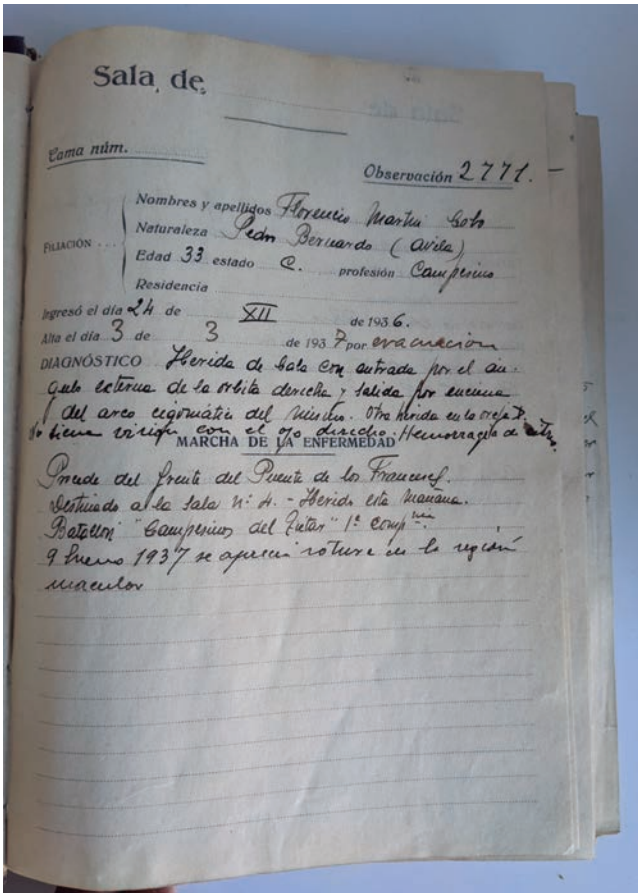 Sala de
Cama núm.
Observación 2771. -
Nombres y apellidos Florencio Martin Soto
FILIACIÓN Naturaleza Pedro Bernardo (Avila)
Edad 33 estado C. profesión Campesino
Residencia
Ingresó el día 24 de XII de 1936.
Alta el día 3 de 3 de 1937 por evacuacion
DIAGNÓSTICO Herida de bala con entrada por el án-
gulo externo de la orbita derecha y salida por encima
del arco cigomático del mismo. Otra herida en la oreja D.
No tiene vision con el ojo derecho. Hemorragia de
MARCHA DE LA ENFERMEDAD
Procede del frente del Puente de los Franceses.
Destinado a la Sala nº 4. - Herido esta mañana.
Batallon "Campesinos del Tietar" 1ª compñia.
9 Enero 1937 se aprecia rotura en la región
macular